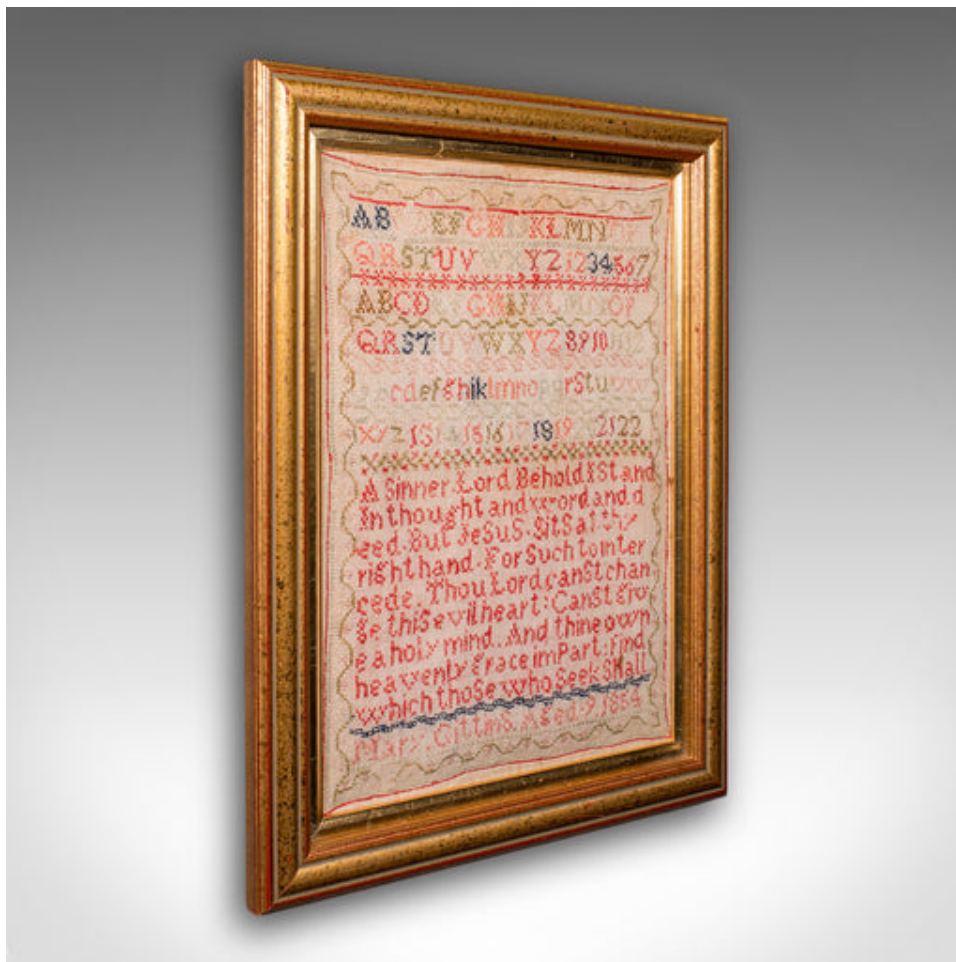 AB EFGHIJKLMNOP
QRSTUVWXYZ1234567
ABCD GHIJKLMNOP
QRSTUVWXYZ8910
cdefghiklmnopqrStuvw
XYZ 1516 1819 2122
A Sinner. Lord Behold I Stand
In thought and word and d
eed. But JeSuS. SitS at thy
right hand. For Such to inter
cede. Thou Lord canSt chan
ge thiS evil heart: CanSt giv
e a holy mind. And thine own
heavenly Grace imPart: Find
which thoSe who Seek SHall
Mary. GittinS. Aged. 9. 1864